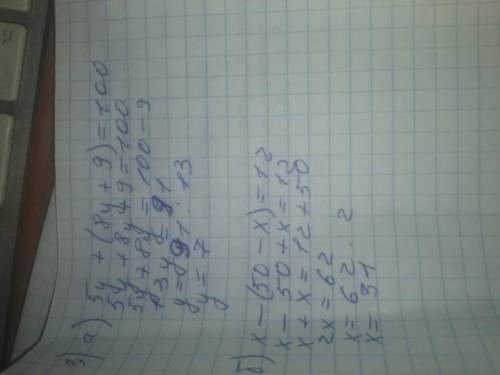 3) а) 5y + (8y + 9) = 100
5y + 8y + 9 = 100
5y + 8y = 100 - 9
13y = 91
y = 91 : 13
y = 7
б) x - (50 - x) = 12
x - 50 + x = 12
x + x = 12 + 50
2x = 62
x = 62 : 2
x = 31